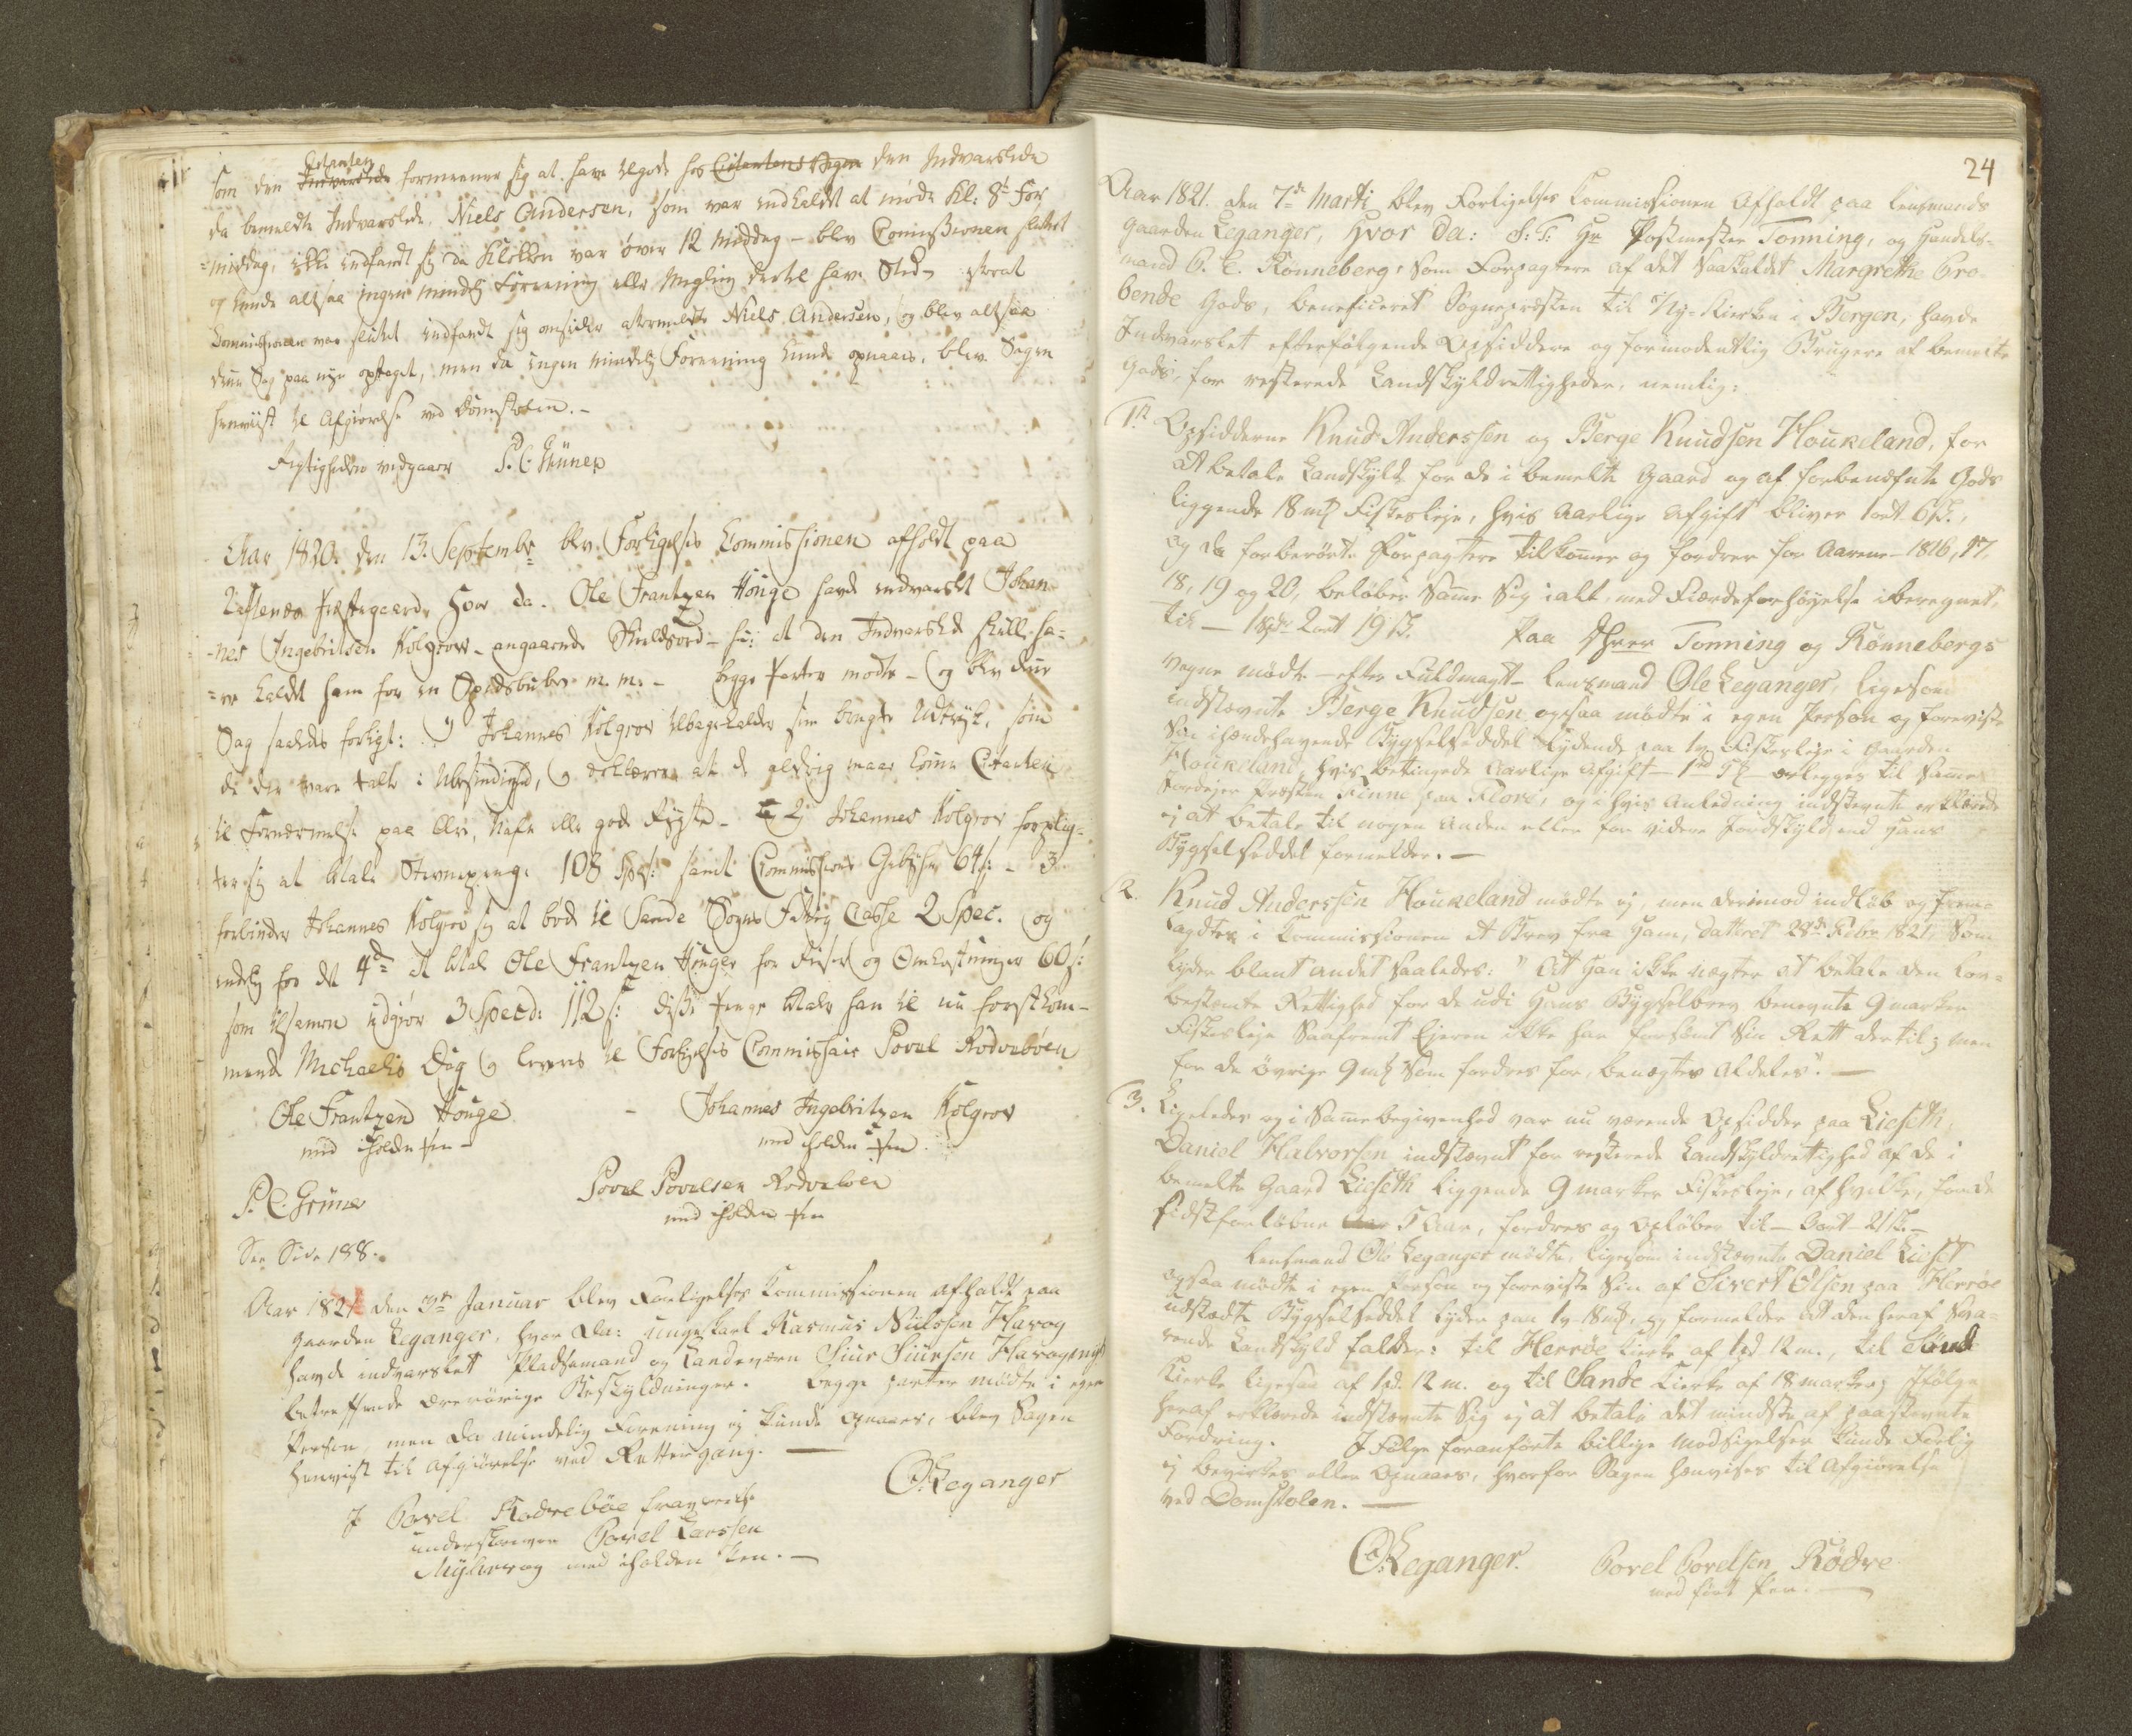 Citanten
som den Indvarslede formeener sig at have tilgode hos Citantens Søgen den Indvarslede
da bemeldte Indvarslede Niels Andersen, som var indkaldt at møde Kl: 8te For
=middag, ikke indfandt sig da Klokken var over 12 Middag - blev Commissionen sluttet
og kunde altsaa ingen mindelig Foreening eller Megling dertil have Sted - strax at
Commissionen var sluttet indfandt sig omsider atermeldte Niels Andersen, og blev altsaa
denne Sag paa nye optaget, men da ingen mindelig Foreening kunde opnaaes, blev Sagen
henviist til Afgiørelse ved Domstolen. -
Rigtigheden vedgaaer P. C. Grüner
Aar 1820. den 13. Septembr blev Forligelses Commissionen afholdt paa
Præstegaarde hvor da. Ole Frantzen Houge havde indvarslet Johan
-nes Ingebritsen Kolgrov - angaaende Skieldsord - hu: at den Indvarslede skulle ha=
=ve kaldt ham for en Spidsbube m. m. - begge Parter mødte - og blev denne
Sag saaledes forligt: 1) Johannes Kolgrov tilbagekalder sine brugte Udtryk, som
de der vare talte i Ubesindighed, og erklærer at de aldrig maae komme Citanten
til Fornærmelse paa Ære, Nafn eller gode Rygte - 2) Johannes Kolgrov forpligt=
ter sig at betale Stevnepenge 108 s: samt Commissions Gebyhr 64 s: - 3.
forbinder Johannes Kolgrov sig at bøde til Sande Sogns Fattig Casse 2 Spec. og
endelig for det 4de at betale Ole Frantzen Houge for Reiser og Omkostninger 60 s:
som tilsamen udgiør 3 Specd: 112 s: disse Penge betaler han til nu førstkom-
mende Michaelis Dag og leveres til Forligelses Commissair Povel Rødvebøen
Ole Frantzen Houge - Johannes Ingebritzen Kolgrov
med iholden Pen - med iholden Pen
P. C. Grüner Povel Povelsen Rødvebøen
med iholden Pen
See Side 188.
Aar 1821 den 3die Januar blev Forligelses Commissionen afholdt paa
Gaarden Leganger, hvor da: ungekarl Rasmus Nielssen Havog
havde indvarslet Pladsemand og Landeværn Siur Siursen Havogeng
betreffende ærerørige Beskyldninger. begge parter mødte i egen
Person, men da mindelig Forening ej kunde opnaaes, blev Sagen
henvist til Afgiørelse ved Rettergang. —
O. Leganger
I Povel Rødvebøe fraværelse
underskriver Povel Larssen
med iholden Pen. —
24
Aar 1821. den 7de Marti blev Forligelses Commissionen Afholdt paa Lensmands
Gaarden Leganger, hvor da: S: T: Hr Postmester Tonning, og Handels-
mand P. E. Rønneberg, som Forpagtere af det saakaldet Margrethe Præ-
bende Gods, beneficeret Sognepræsten til Ny-Kierken i Bergen, havde
Indvarslet efterfølgende Opsiddere og formodentlig Brugere af bemelte
Gods, for resterede Landskyldrettigheder, nemlig:
1st Opsidderne Knud Anderssen og Berge Knudsen Houkeland, for
at betale Landskyld for de i bemelte Gaard og af forbenæfnte Gods
liggende 18 mk Fiskesleje, hvis Aarlige Afgift bliver 1 ort 6 s.,
og da forberørte Forpagtere tilkomer og fordrer for Aarene - 1816, 17,
18, 19 og 20, beløber Same Sig i alt, med Fierdeforhøyelse iberegnet,
til — 1 spdr 2 ort 19 s. Paa Hrrer Tonning og Rønnebergs
vegne mødte - efter Fuldmagt - Lensmand Ole Leganger, ligesom
indstævnte Berge Knudsen ogsaa mødte i egen Person og foreviste
sin ihændehavende Bygselseddel Lydende paa 1 Fiskesleje i Gaarden
Houkeland, hvis betingede Aarlige Afgift - erlegges til Same
Jordejer Præsten Finne paa Florø, og i hvis Anledning indstevnte erklærede
ej at betale til nogen Anden eller for videre Jordskyld end hans
Bygselseddel formelder. —
2. Knud Anderssen Houkeland mødte ej, men derimod indløb og frem-
lagdtes i Commissionen et Brev fra ham, Datteret 28de Febr 1821, som
lyder blant andet saaledes: "At han ikke nægter at betale den Lov-
bestemte Rettighed for de udi hans Bygselbrev benevnte 9 marker
Fiskesleje Saafremt Ejeren ikke har forsømt Sin Rett dertil; men
for de øvrige 9 mk som fordres for, benægtes Aldeles". —
3. Ligeledes og i Samebegivenhed var nu værende Opsidder paa Lieseth,
Daniel Halvorsen indstævnt for resterede Landskyldrettighed af de i
bemelte Gaard Lieseth liggende 9 marker Fiskesleje, af hvilke, for de
sidstforløbne Aar 5 Aar, fordres og opløber til - ort - 21 s. -
Lensmand Ole Leganger mødte, ligesom indstævnte Daniel Lieset
ogsaa mødte i egen Person og foreviste Sin af Sivert Olsen paa Herrøe
udstædte Bygselseddel lyder paa 1 v 18 mk, og formelder At den heraf Sva-
rende Landskyld falder: til Herrøe Kierke af 1 pd. 12 m., til Sønd
Kierke ligesaa af 1 pd. 12 m. og til Sande Kierke af 18 marker; Ifølge
heraf erklærede indstævnte Sig ej at betale det mindste af paastevnte
Fordring. I Følge foranførte billige Modsigelser kunde Forlig
ej bevirkes eller opnaaes, hvorfor Sagen henvises til Afgiørelse
ved Domstolen. —
O. Leganger. Povel Povelsen Rødve
med ført Pen. —